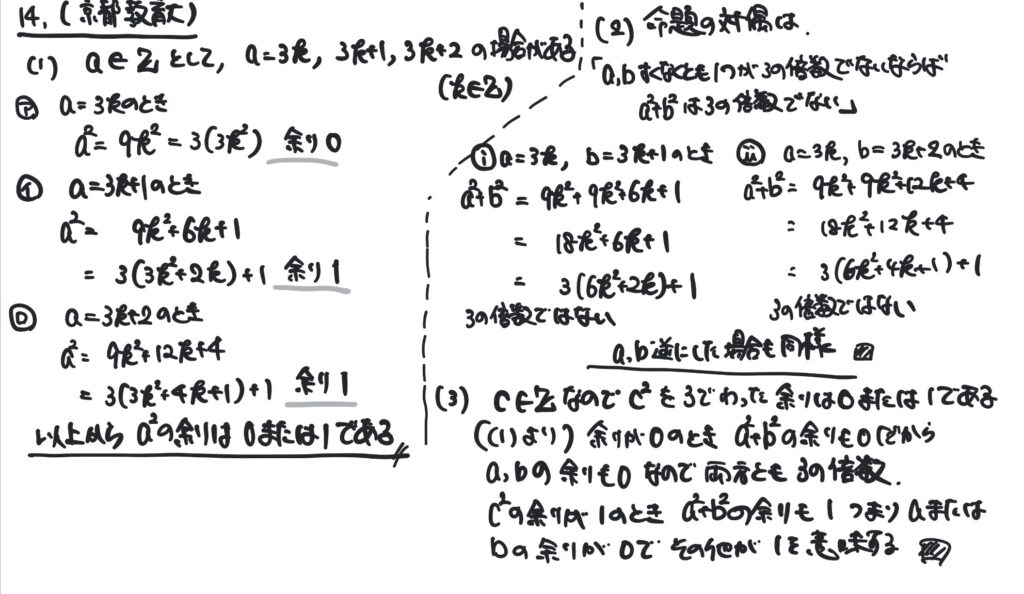 14. (京都教育大)
(1) a∈Z として, a=3k, 3k+1, 3k+2 の場合がある
(k∈Z)
㋐ a=3kのとき
a²=9k²=3(3k²) 余り0
㋑ a=3k+1のとき
a²= 9k²+6k+1
= 3(3k²+2k)+1 余り1
㋺ a=3k+2のとき
a²= 9k²+12k+4
= 3(3k²+4k+1)+1 余り1
以上から a²の余りは 0または1である
(2) 命題の対偶は.
「a,bすくなくとも1つが3の倍数でないならば
a²+b²は3の倍数でない」
ⓘ a=3k, b=3k+1のとき
a²+b² = 9k²+9k²+6k+1
= 18k²+6k+1
= 3(6k²+2k)+1
3の倍数ではない
ⓘⓘ a=3k, b=3k+2のとき
a²+b²= 9k²+9k²+12k+4
= 18k²+12k+4
= 3(6k²+4k+1)+1
3の倍数ではない
a,b逆にした場合も同様
(3) c∈Zなので c²を3でわった余りは0または1である
((1)より) 余りが0のとき a²+b²の余りも0だから
a,bの余りも0なので両方とも3の倍数.
c²の余りが1のとき a²+b²の余りも1 つまりaまたは
bの余りが0でその他が1を意味する